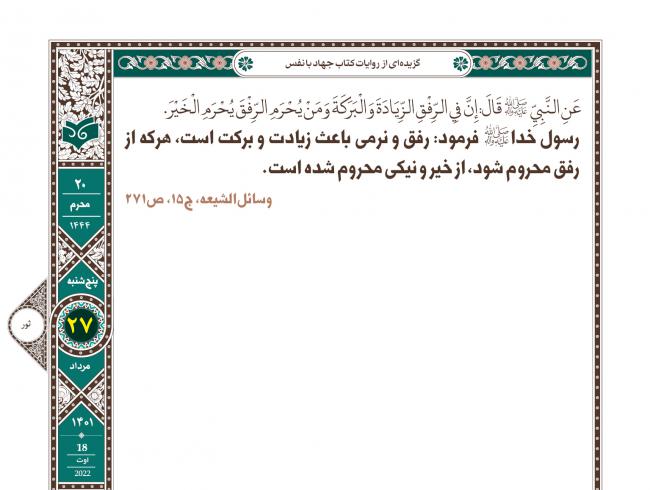 گزیده‌ای از روایات کتاب جهاد با نفس
عَنِ النَّبِيِّ ﷺ قَالَ: إِنَّ فِي الرِّفْقِ الزِّيَادَةَ وَالْبَرَكَةَ وَمَنْ يُحْرَمِ الرِّفْقَ يُحْرَمِ الْخَيْرَ.
رسول خدا ﷺ فرمود: رفق و نرمی باعث زیادت و برکت است، هرکه از
رفق محروم شود، از خیر و نیکی محروم شده است.
وسائل‌الشیعه، ج۱۵، ص۲۷۱
۲۰
محرم
۱۴۴۴
پنج‌شنبه
۲۷
ثور
مرداد
۱۴۰۱
18
اوت
2022